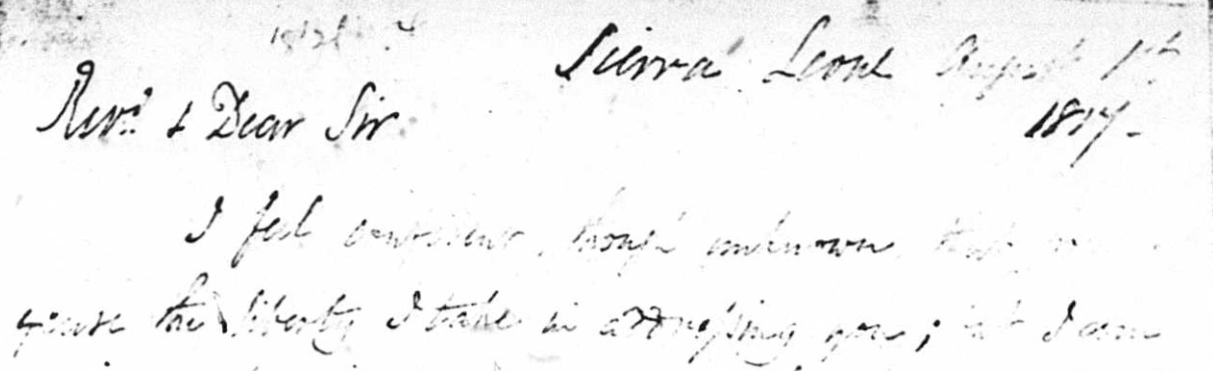 Sierra Leone August 1st
1817-
Revd & Dear Sir
I feel confident, though unknown, that
excuse the liberty I take in addressing you; but I am